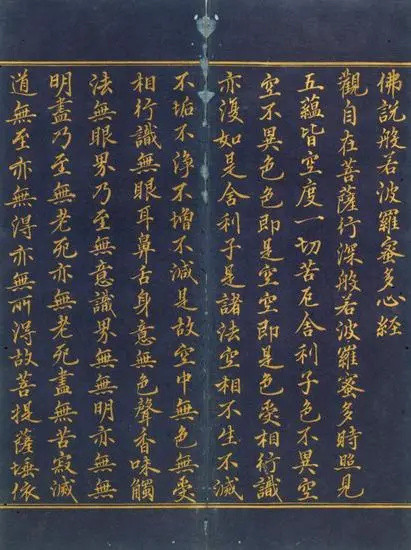 佛說般若波羅蜜多心經
觀自在菩薩行深般若波羅蜜多時照見
五蘊皆空度一切苦厄舍利子色不異空
空不異色色即是空空即是色受相行識
亦復如是舍利子是諸法空相不生不滅
不垢不淨不增不減是故空中無色無受
相行識無眼耳鼻舌身意無色聲香味觸
法無眼界乃至無意識界無無明亦無無
明盡乃至無老死亦無老死盡無苦寂滅
道無至亦無得亦無所得故菩提薩埵依